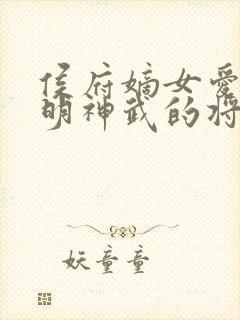 侯府嫡女爱
明神武的将
妖童童